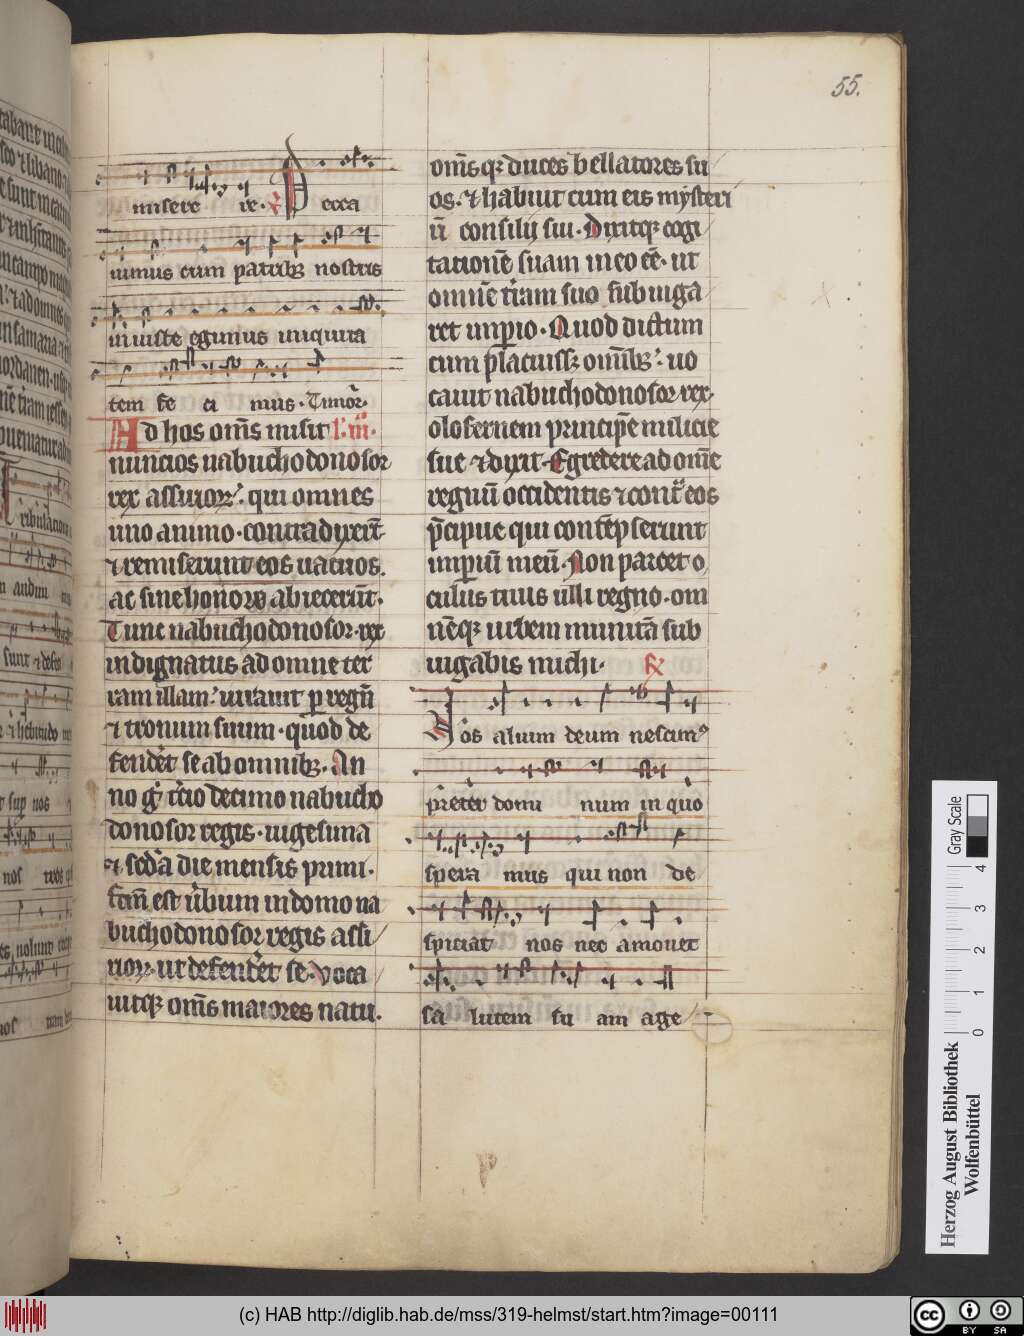 55.
misere re. Pecca
uimus cum patribꝫ nostris
iniuste egimus iniquita
tem fe ci mus. Timor̄.
Ad hos om̄s misit l. iii.
nuncios nabuchodonosor
rex assiriorꝝ. qui omnes
uno animo. contradixer̄t
⁊ remiserunt eos uacuos.
ac sine honore abiecerūt.
Tunc nabuchodonosor. rex
indignatus ad omne ter
ram illam. iurauit ꝑ regnū
⁊ tronum suum. quod de
fender̄t se ab omnibꝫ. An
no gͦ t̄cio decimo nabucho
donosor regis. uigesima
⁊ sed̄a die mensis primi.
fc̄m est ūbum in domo na
buchodonosor regis assi
riorꝝ. ut defender̄t se. Voca
uitqꝫ om̄s maiores natu.
om̄sqꝫ duces bellatores su
os. ⁊ habuit cum eis mẏsteri
ū consilij sui. Dixitqꝫ cogi
tationē suam in eo eē. ut
omnē t̄ram suo subiuga
ret imperio. Quod dictum
cum placuissꝫ om̄ibꝫ. uo
cauit nabuchodonosor rex.
olofernem principē milicie
sue ⁊ dixit. Egredere ad om̄e
regnū occidentis ⁊ cont̄ eos
p̄cipue qui contēpserunt
imꝑiū meū. Non parcet o
culus tuus ulli regno. om
nēqꝫ urbem munitā sub
iugabis michi. ℟
Nos alium deum nescimꝰ
p̄ter̄ domi num in quo
spera mus qui non de
spiciat nos nec amouet
sa lutem su am a ge
(c) HAB http://diglib.hab.de/mss/319-helmst/start.htm?image=00111
Herzog August Bibliothek
Wolfenbüttel
Gray Scale
0 1 2 3 4
cc BY SA